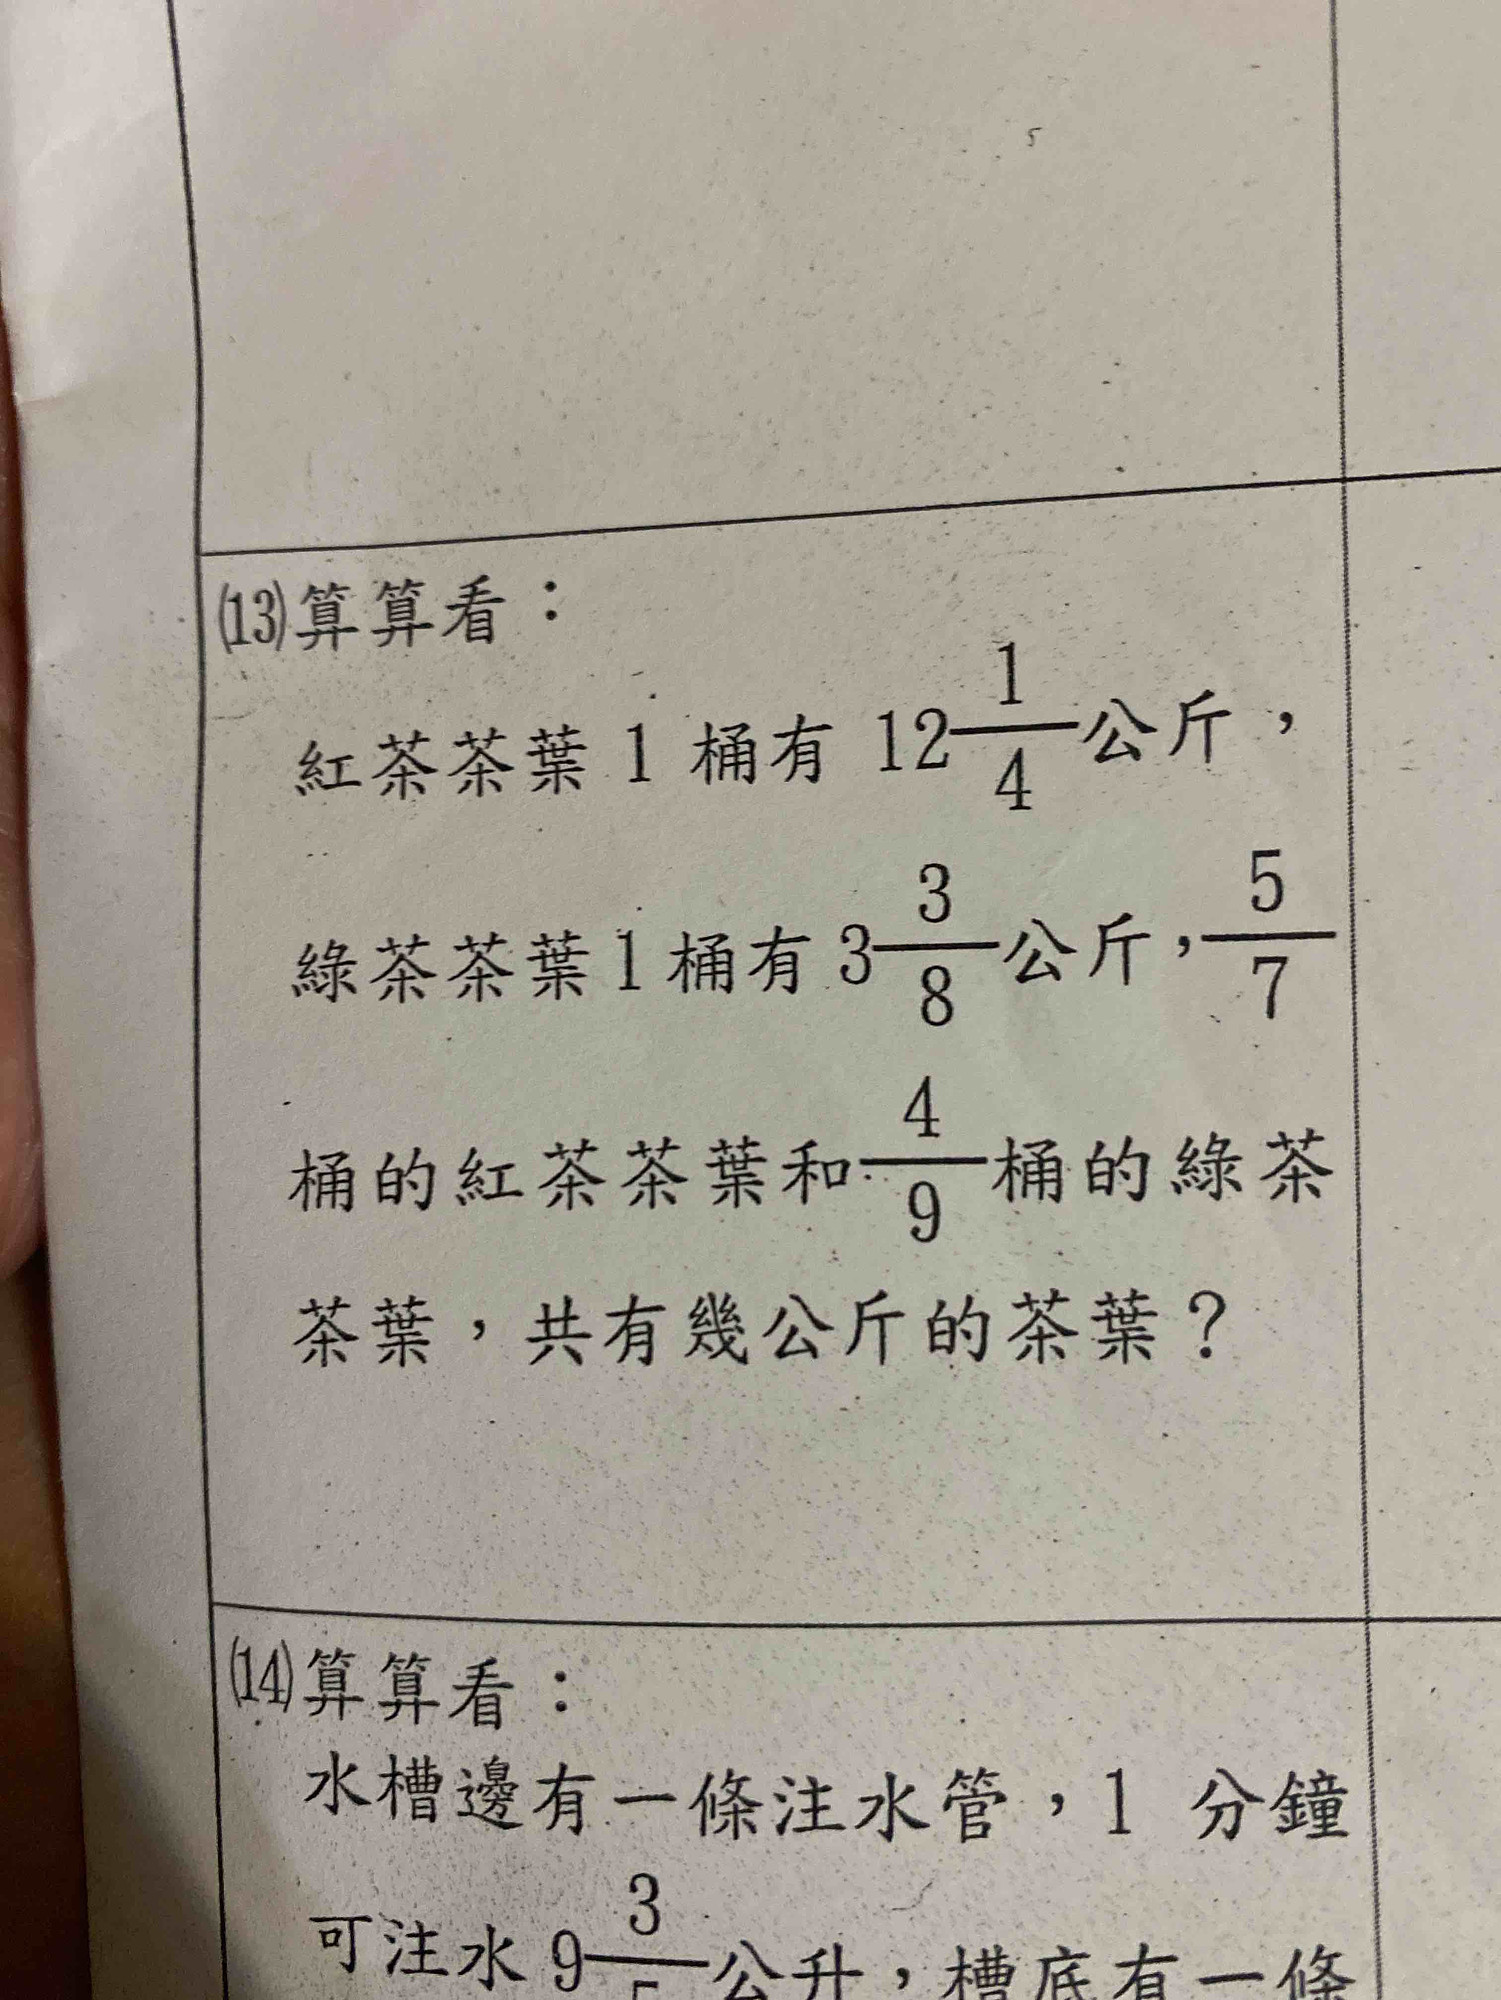 ⒀算算看：
紅茶茶葉 1 桶有 12 1/4 公斤，
綠茶茶葉 1 桶有 3 3/8 公斤，5/7
桶的紅茶茶葉和 4/9 桶的綠茶
茶葉，共有幾公斤的茶葉？
⒁算算看：
水槽邊有一條注水管，1 分鐘
可注水 9 3/5 公升，槽底有一條